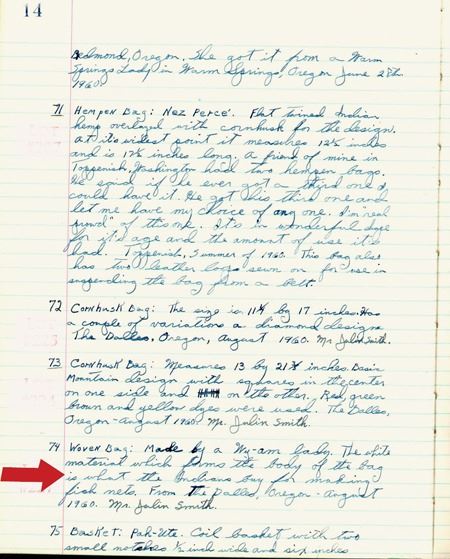 14
Redmond, Oregon. She got it from a Warm
Springs Lady in Warm Springs, Oregon June 28th.
1960.
71 Hempen Bag: Nez Perce'. Flat twined Indian
hemp overlayed with cornhusk for the design.
At its widest point it measures 12½ inches
and is 17½ inches long. A friend of mine in
Toppenish, Washington had two hempen bags.
He said if he ever got a third one I
could have it. He got his third one and
let me have my choice of any one. I'm real
proud of this one. It's in wonderful
for it's age and the amount of use it's
had. Toppenish, Summer of 1960. This bag also
has two leather loops sewn on for use in
suspending the bag from a belt.
72 Cornhusk Bag: The size is 11¼ by 17 inches. Has
a couple of variations a diamond design.
The Dalles, Oregon, August 1960. Mr. Julin Smith.
73 Cornhusk Bag: Measures 13 by inches. Basic
Mountain design with squares in the center
on one side and on the other. Red, green
brown and yellow dyes were used. The Dalles,
Oregon - August 1960. Mr. Julin Smith.
74 Woven Bag: Made by a Wy-am lady. The white
material which forms the body of the bag
is what the Indians buy for making
fish nets. From the Dalles, Oregon - August
1960. Mr. Julin Smith.
75 Basket: Pah-Ute. Coil basket with two
small notches ½ inch wide and six inches